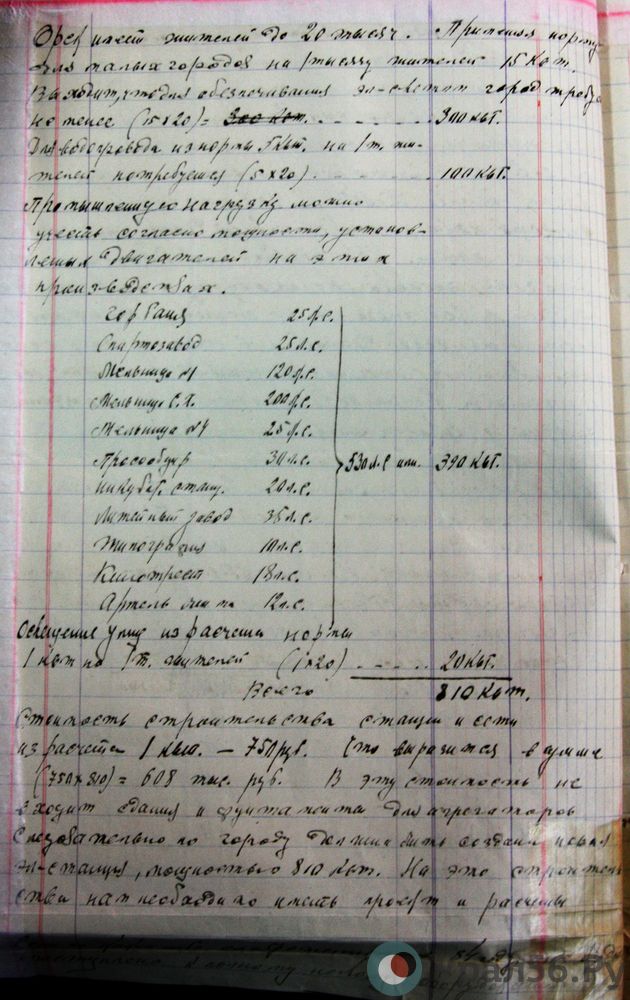 Орск имеет жителей до 20 тысяч. Принимая норму
для малых городов на 1 тысячу жителей 15 Квт.
для обеспечивания эл-светом город требу
не менее (15х20)= 300 Квт. - - - - - 300 квт.
Для водопровода из нормы 5 квт. на 1 т. жи-
телей потребуется (5х20) - - - - - 100 квт.
Промышленную нагрузку можно
учесть согласно мощности, установ-
леных двигателей на этих
производствах.
Гор баня 25 л.с.
Спиртозавод 25 л.с.
Мельница №1 120 л.с.
Мельница С.Х. 200 л.с.
Мельница №4 25 л.с.
Прособдир 30 л.с. 530 л.с или 390 квт.
Инкубат. станц. 20 л.с.
Литейный завод 35 л.с.
Типография 10 л.с.
Кинотрест 18 л.с.
Артель 12 л.с.
Освещения улиц из расчета нормы
1 квт на 1 т. жителей (1х20) - - - - 20 квт.
Всего 810 квт.
Стоимость строительства станции и сети
из расчета 1 квт. – 750 руб. Что выразится в сумме
(750х810) = 608 тыс. руб. В эту стоимость не
входит здания и фундамента для агрегаторов
Следовательно по городу должна быть создана новая
эл-станция, мощностью 810 квт. На это строитель
ство нам необходимо иметь проект и расчеты
Урал56.Ру